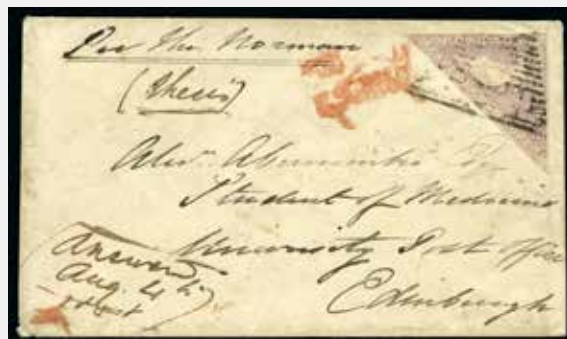 Per the Norman
(thesis)
Alexr. Abercrombie Esq
Student of Medicine
University Post Office
Edinburgh
Answered
Aug. 4th